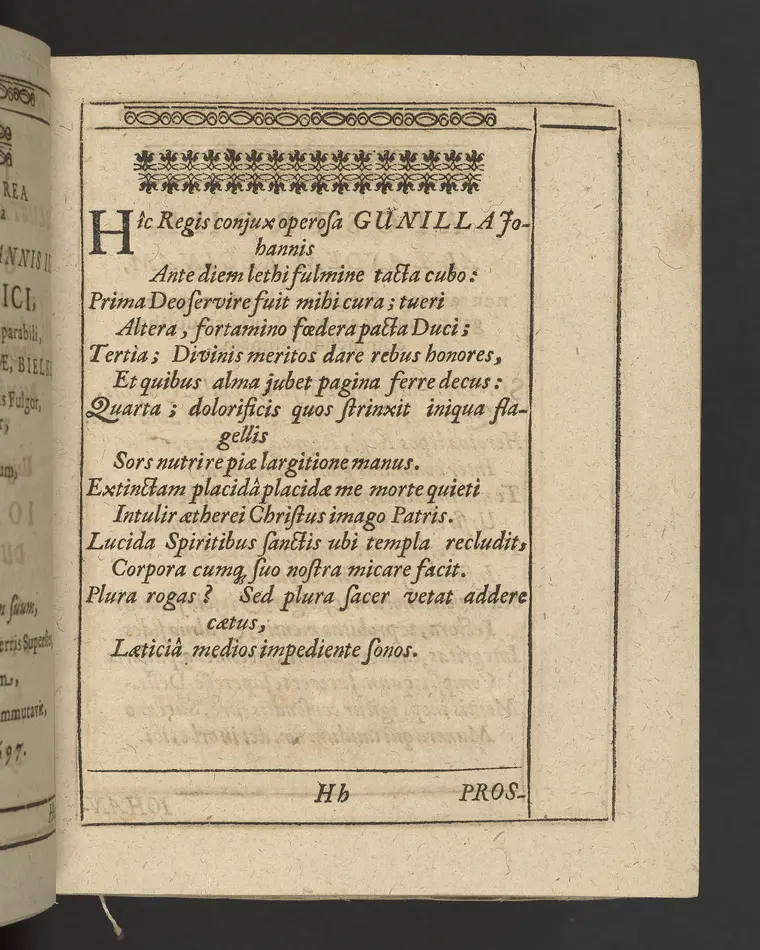 REA
ANNIS II
ICI,
parabili,
Æ, BIELK
s Fulgor,
r,
um,
n suum,
erris Superstes,
n,
mmutavit,
697.
Hîc Regis conjux operosa GUNILLA Jo-
hannis
Ante diem lethi fulmine tacta cubo:
Prima Deo servire fuit mihi cura; tueri
Altera, fortamino fœdera pacta Duci;
Tertia; Divinis meritos dare rebus honores,
Et quibus alma jubet pagina ferre decus:
Quarta; dolorificis quos strinxit iniqua fla-
gellis
Sors nutrire piæ largitione manus.
Extinctam placidâ placidæ me morte quieti
Intulir ætherei Christus imago Patris.
Lucida Spiritibus sanctis ubi templa recludit,
Corpora cumq; suo nostra micare facit.
Plura rogas? Sed plura sacer vetat addere
cætus,
Læticiâ medios impediente sonos.
Hh
PROS-